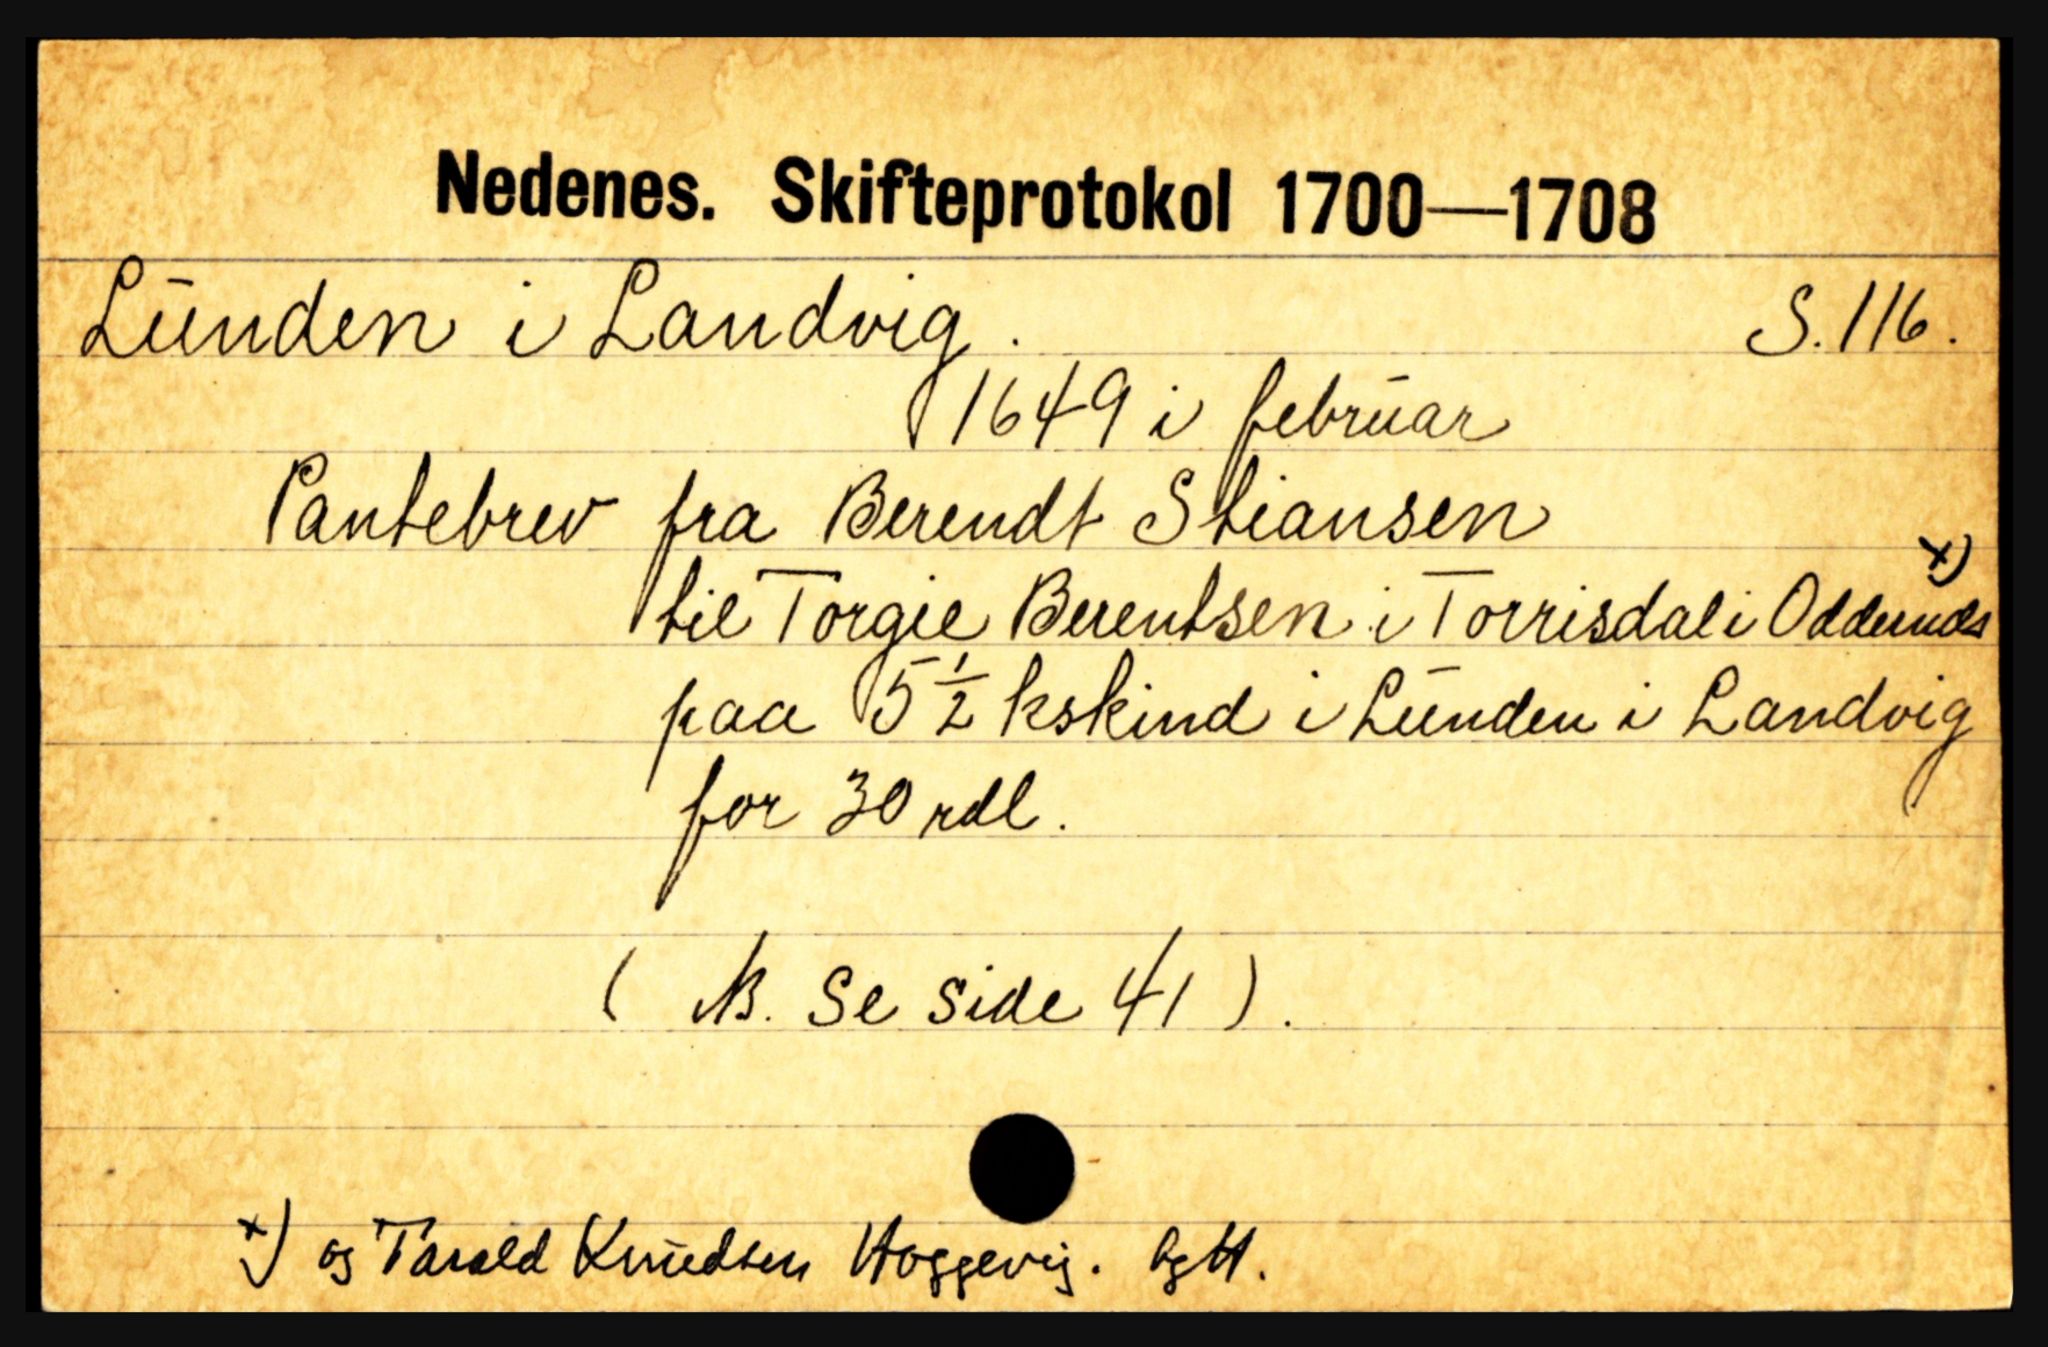 Nedenes. Skifteprotokol 1700—1708
Lunden i Landvig. S. 116.
1649 i februar
Pantebrev fra Berendt Stiansen
til Torgie Berentsen i Torrisdal i Oddernds x)
paa 5½ kskind i Lunden i Landvig
for 30 rdl.
( NB. Se side 41 ).
x) og Tarald Knudsen Hoggevig. Lgtt.